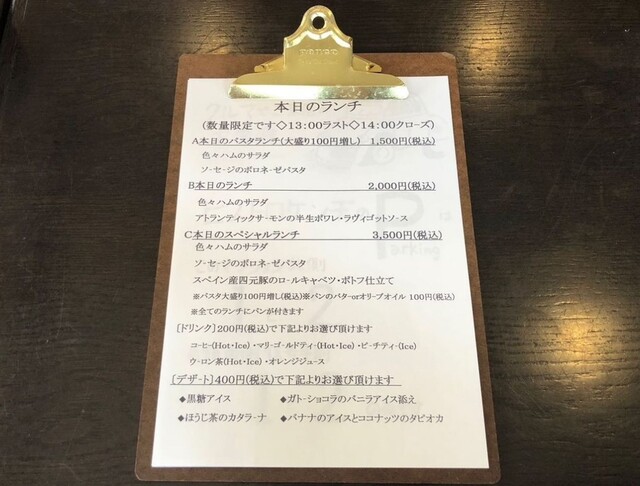 本日のランチ
(数量限定です◇13:00ラスト◇14:00クローズ)
A本日のパスタランチ(大盛り100円増し) 1,500円(税込)
色々ハムのサラダ
ソーセージのボロネーゼパスタ
B本日のランチ 2,000円(税込)
色々ハムのサラダ
アトランティックサーモンの半生ポワレ・ラヴィゴットソース
C本日のスペシャルランチ 3,500円(税込)
色々ハムのサラダ
ソーセージのボロネーゼパスタ
スペイン産四元豚のロールキャベツ・ポトフ仕立て
※パスタ大盛り100円増し(税込)※パンのバターorオリーブオイル 100円(税込)
※全てのランチにパンが付きます
[ドリンク]200円(税込)で下記よりお選び頂けます
コーヒー(Hot・Ice)・マリーゴールドティー(Hot・Ice)・ピーチティー(Ice)
ウーロン茶(Hot・Ice)・オレンジジュース
[デザート]400円(税込)で下記よりお選び頂けます
◆黒糖アイス ◆ガトーショコラのバニラアイス添え
◆ほうじ茶のカタラーナ ◆バナナのアイスとココナッツのタピオカ